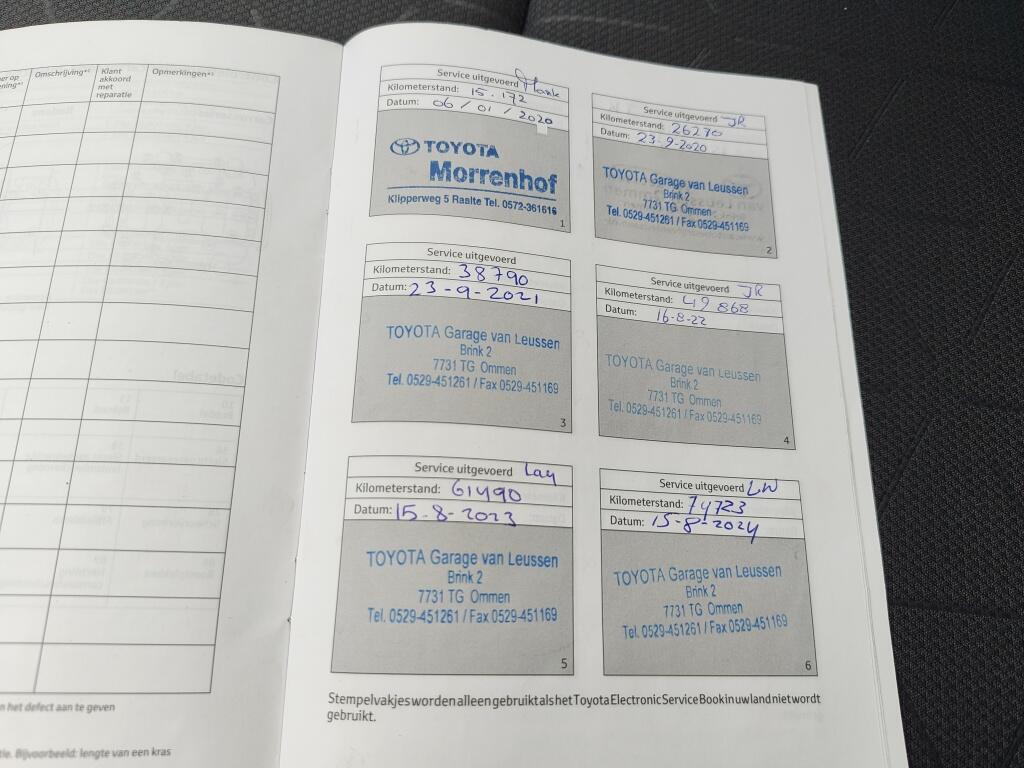 Omschrijving*⁵
Klant
akkoord
met
reparatie
Opmerkingen*⁵
Service uitgevoerd
Kilometerstand: 15.172
Datum: 06 / 01 / 2020
TOYOTA
Morrenhof
Klipperweg 5 Raalte Tel. 0572-361616
1
Service uitgevoerd JR
Kilometerstand: 26270
Datum: 23-9-2020
TOYOTA Garage van Leussen
Brink 2
7731 TG Ommen
Tel. 0529-451261 / Fax 0529-451169
2
Service uitgevoerd
Kilometerstand: 38790
Datum: 23-9-2021
TOYOTA Garage van Leussen
Brink 2
7731 TG Ommen
Tel. 0529-451261 / Fax 0529-451169
3
Service uitgevoerd JR
Kilometerstand: 49868
Datum: 16-8-22
TOYOTA Garage van Leussen
Brink 2
7731 TG Ommen
Tel. 0529-451261 / Fax 0529-451169
4
Service uitgevoerd
Kilometerstand: 61490
Datum: 15-8-2023
TOYOTA Garage van Leussen
Brink 2
7731 TG Ommen
Tel. 0529-451261 / Fax 0529-451169
5
Service uitgevoerd LW
Kilometerstand: 74723
Datum: 15-8-2024
TOYOTA Garage van Leussen
Brink 2
7731 TG Ommen
Tel. 0529-451261 / Fax 0529-451169
6
Stempelvakjes worden alleen gebruikt als het Toyota Electronic Service Book in uw land niet wordt
gebruikt.
het defect aan te geven
Bijvoorbeeld: lengte van een kras